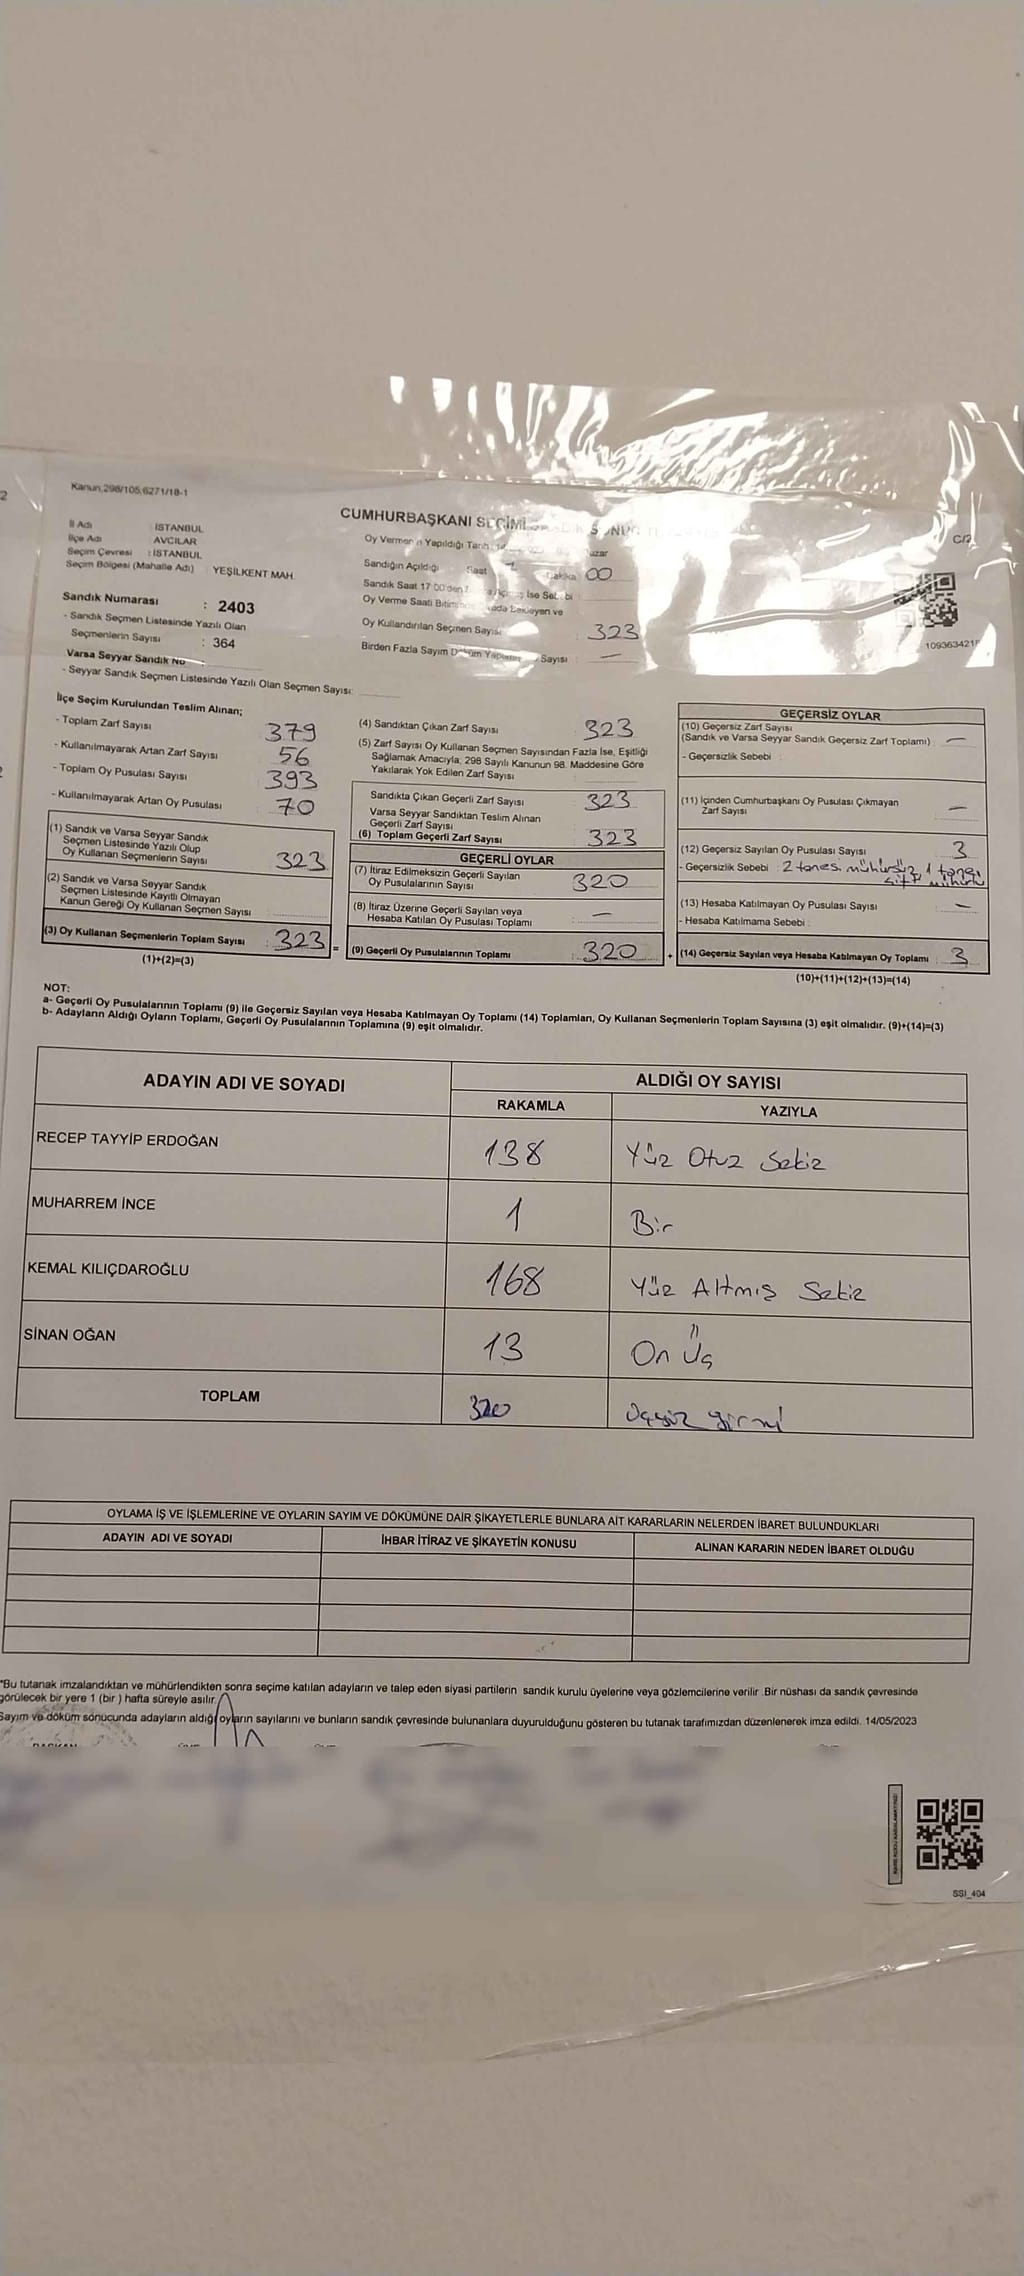 Kanun,298/105,6271/18-1
CUMHURBAŞKANI SEÇİMİ
C/2
İl Adı : İSTANBUL
İlçe Adı : AVCILAR
Seçim Çevresi : İSTANBUL
Seçim Bölgesi (Mahalle Adı) YEŞİLKENT MAH.
Sandık Numarası : 2403
- Sandık Seçmen Listesinde Yazılı Olan
Seçmenlerin Sayısı : 364
Varsa Seyyar Sandık No :
- Seyyar Sandık Seçmen Listesinde Yazılı Olan Seçmen Sayısı:
Oy Vermenin Yapıldığı Tarih
Sandığın Açıldığı Saat Dakika 00
Sandık Saat 17:00'den İse Sebebi
Oy Verme Saati Bekleyen ve
Oy Kullandırılan Seçmen Sayısı : 323
Birden Fazla Sayım Döküm Sayısı : —
İlçe Seçim Kurulundan Teslim Alınan;
- Toplam Zarf Sayısı 379
- Kullanılmayarak Artan Zarf Sayısı 56
- Toplam Oy Pusulası Sayısı 393
- Kullanılmayarak Artan Oy Pusulası 70
(1) Sandık ve Varsa Seyyar Sandık
Seçmen Listesinde Yazılı Olup
Oy Kullanan Seçmenlerin Sayısı : 323
(2) Sandık ve Varsa Seyyar Sandık
Seçmen Listesinde Kayıtlı Olmayan
Kanun Gereği Oy Kullanan Seçmen Sayısı
(3) Oy Kullanan Seçmenlerin Toplam Sayısı : 323 =
(1)+(2)=(3)
(4) Sandıktan Çıkan Zarf Sayısı 323
(5) Zarf Sayısı Oy Kullanan Seçmen Sayısından Fazla İse, Eşitliği
Sağlamak Amacıyla, 298 Sayılı Kanunun 98. Maddesine Göre
Yakılarak Yok Edilen Zarf Sayısı
Sandıkta Çıkan Geçerli Zarf Sayısı 323
Varsa Seyyar Sandıktan Teslim Alınan
Geçerli Zarf Sayısı
(6) Toplam Geçerli Zarf Sayısı 323
GEÇERLİ OYLAR
(7) İtiraz Edilmeksizin Geçerli Sayılan
Oy Pusulalarının Sayısı 320
(8) İtiraz Üzerine Geçerli Sayılan veya
Hesaba Katılan Oy Pusulası Toplamı —
(9) Geçerli Oy Pusulalarının Toplamı : 320 +
GEÇERSİZ OYLAR
(10) Geçersiz Zarf Sayısı
(Sandık ve Varsa Seyyar Sandık Geçersiz Zarf Toplamı) —
- Geçersizlik Sebebi :
(11) İçinden Cumhurbaşkanı Oy Pusulası Çıkmayan
Zarf Sayısı —
(12) Geçersiz Sayılan Oy Pusulası Sayısı 3
- Geçersizlik Sebebi 2 tanesi mühürsüz, 1 tanesi
çift mühürlü
(13) Hesaba Katılmayan Oy Pusulası Sayısı —
- Hesaba Katılmama Sebebi
(14) Geçersiz Sayılan veya Hesaba Katılmayan Oy Toplamı : 3
(10)+(11)+(12)+(13)=(14)
NOT:
a- Geçerli Oy Pusulalarının Toplamı (9) ile Geçersiz Sayılan veya Hesaba Katılmayan Oy Toplamı (14) Toplamları, Oy Kullanan Seçmenlerin Toplam Sayısına (3) eşit olmalıdır. (9)+(14)=(3)
b- Adayların Aldığı Oyların Toplamı, Geçerli Oy Pusulalarının Toplamına (9) eşit olmalıdır.
ADAYIN ADI VE SOYADI ALDIĞI OY SAYISI
RAKAMLA YAZIYLA
RECEP TAYYİP ERDOĞAN 138 Yüz Otuz Sekiz
MUHARREM İNCE 1 Bir
KEMAL KILIÇDAROĞLU 168 Yüz Altmış Sekiz
SİNAN OĞAN 13 On Üç
TOPLAM 320 Üçyüz yirmi
OYLAMA İŞ VE İŞLEMLERİNE VE OYLARIN SAYIM VE DÖKÜMÜNE DAİR ŞİKAYETLERLE BUNLARA AİT KARARLARIN NELERDEN İBARET BULUNDUKLARI
ADAYIN ADI VE SOYADI İHBAR İTİRAZ VE ŞİKAYETİN KONUSU ALINAN KARARIN NEDEN İBARET OLDUĞU
*Bu tutanak imzalandıktan ve mühürlendikten sonra seçime katılan adayların ve talep eden siyasi partilerin sandık kurulu üyelerine veya gözlemcilerine verilir .Bir nüshası da sandık çevresinde
görülecek bir yere 1 (bir ) hafta süreyle asılır.
Sayım ve döküm sonucunda adayların aldığı oyların sayılarını ve bunların sandık çevresinde bulunanlara duyurulduğunu gösteren bu tutanak tarafımızdan düzenlenerek imza edildi. 14/05/2023
BAŞKAN
SSI_404